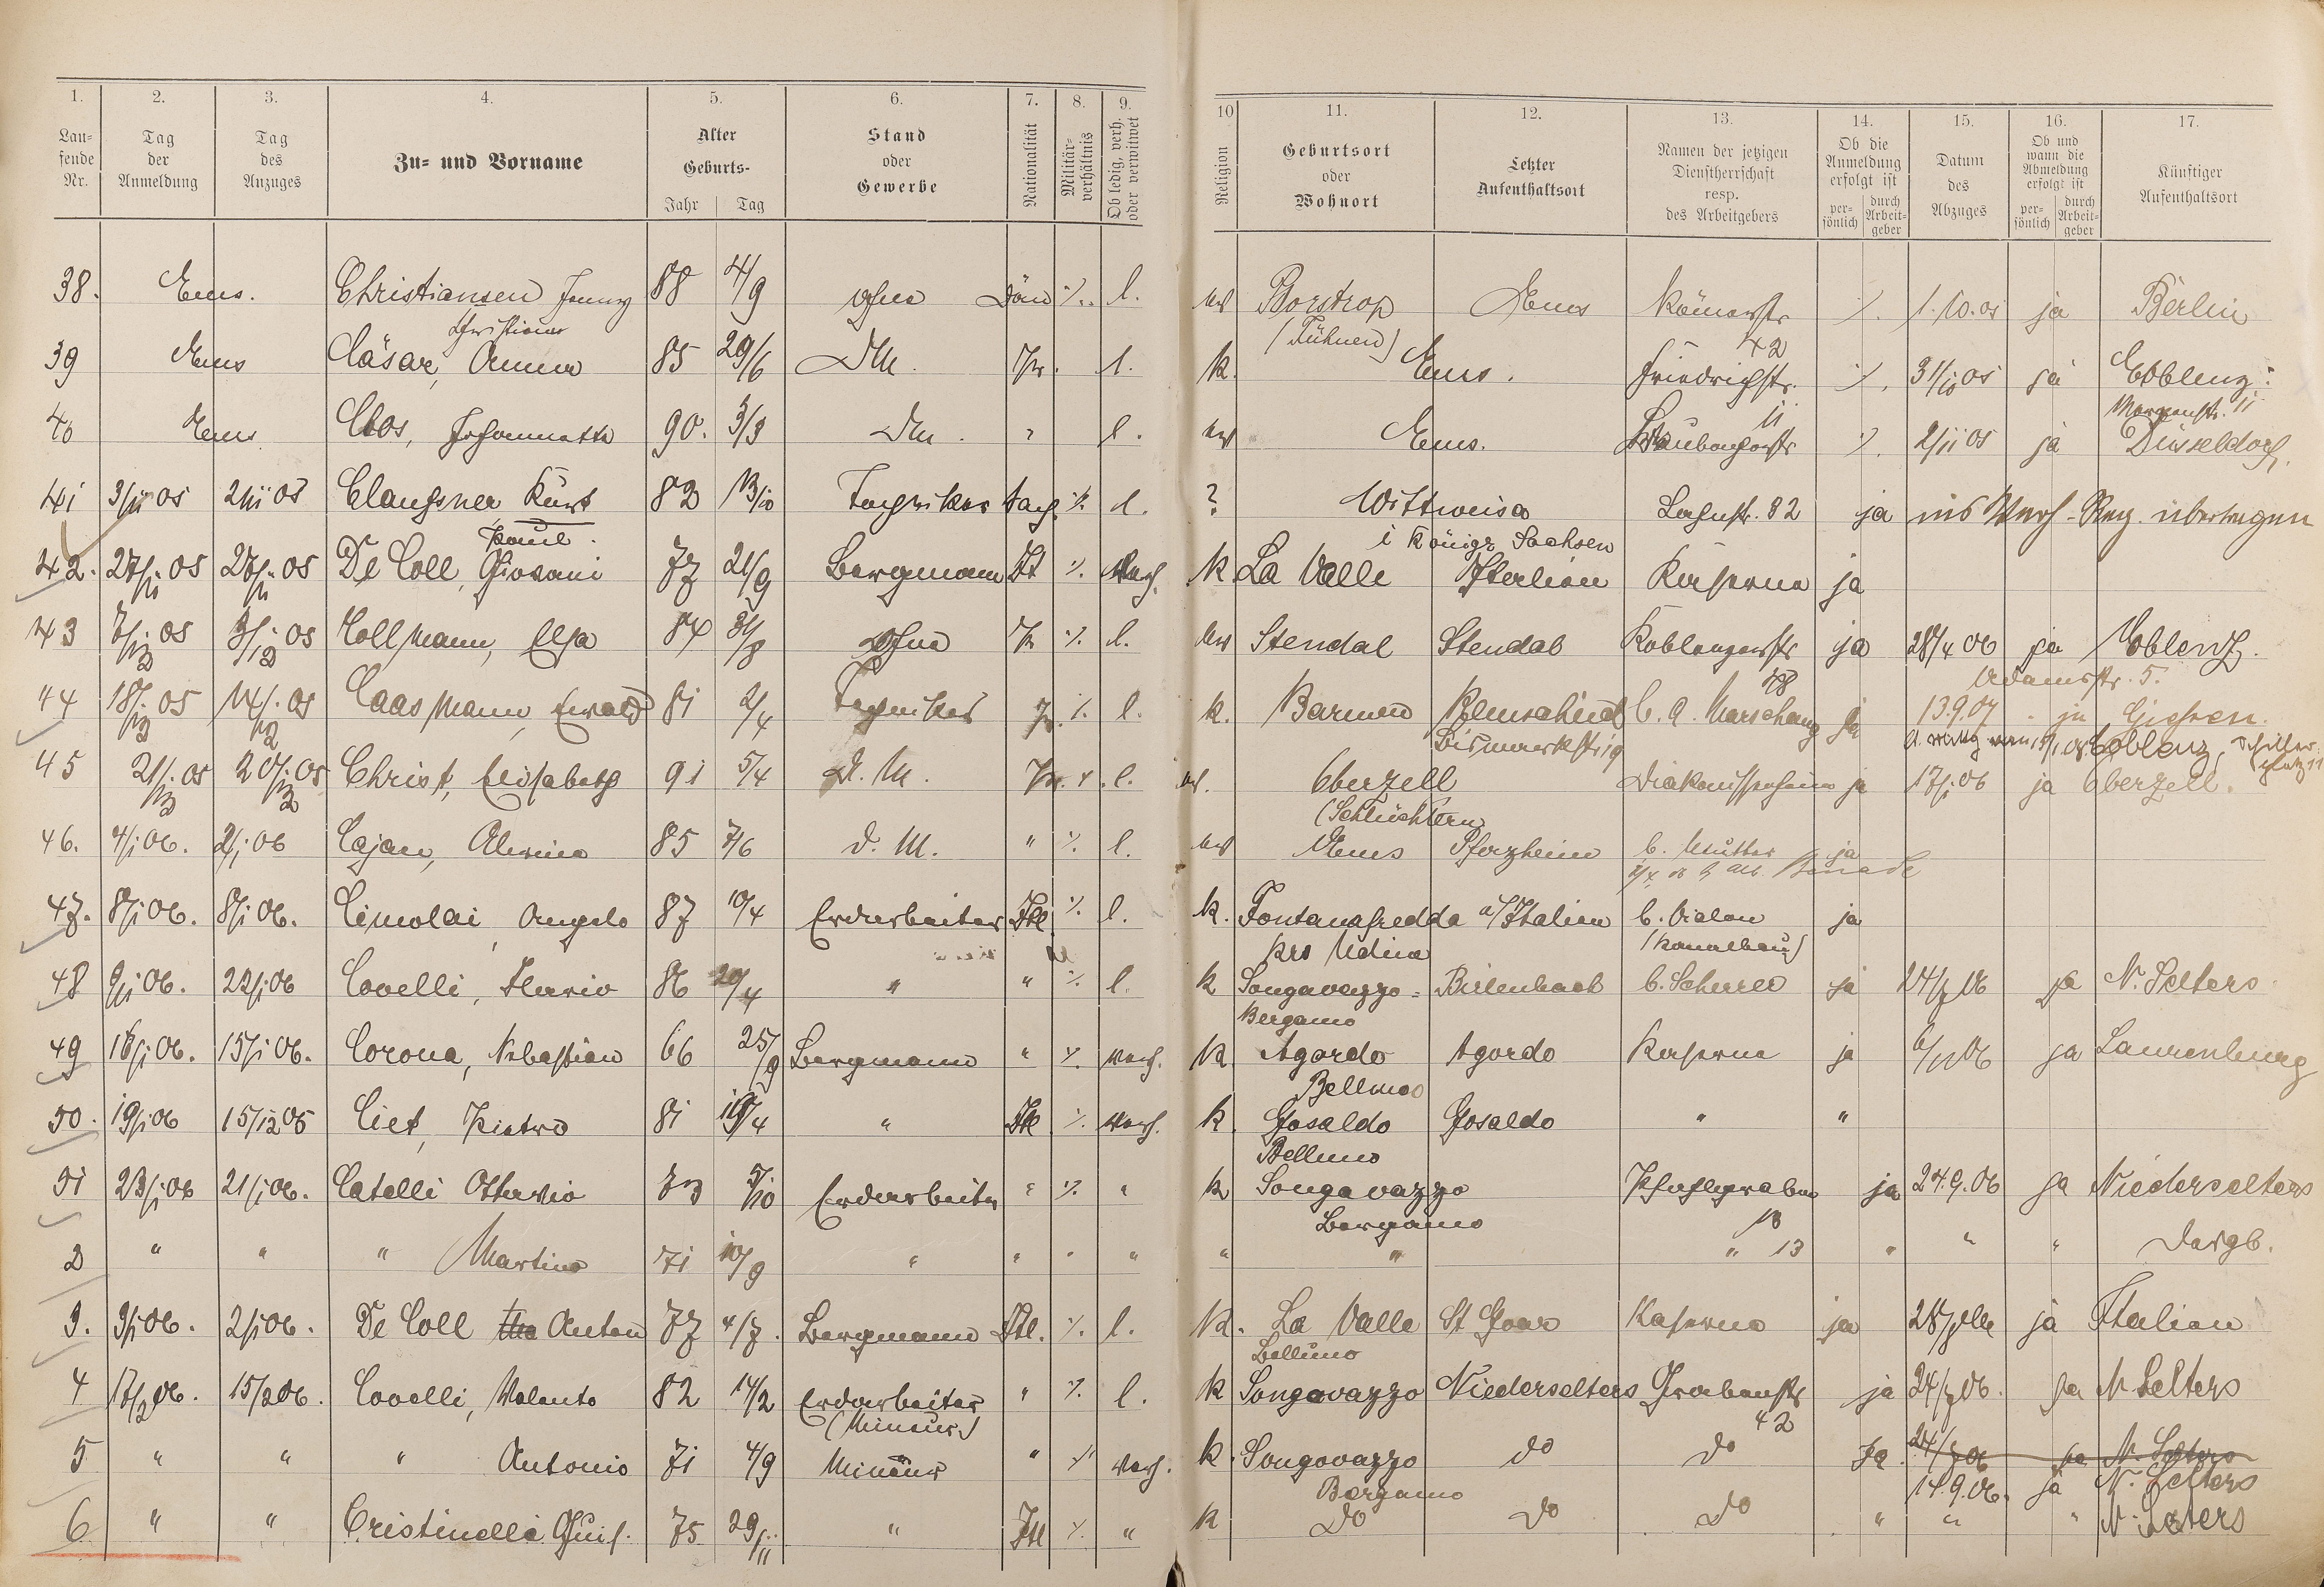 1. 2. 3. 4. 5. 6. 7. 8. 9. 10 11. 12. 13. 14. 15. 16. 17.
Lau-
fende
Nr.
Tag
der
Anmeldung
Tag
des
Anzuges
Zu- und Vorname
Alter
Geburts-
Jahr Tag
Stand
oder
Gewerbe
Nationalität
Militär-
verhältnis
Ob ledig, verh.
oder verwitwet
Religion
Geburtsort
oder
Wohnort
Letzter
Aufenthaltsort
Namen der jetzigen
Dienstherrschaft
resp.
des Arbeitgebers
Ob die
Anmeldung
erfolgt ist
per-
sönlich
durch
Arbeit-
geber
Datum
des
Abzuges
Ob und
wann die
Abmeldung
erfolgt ist
per-
sönlich
durch
Arbeit-
geber
Künftiger
Aufenthaltsort
38. Ems. Christiansen Jenny 88 4/9 ohne Dän ⁒. l. ev Borstrop Ems Römerstr ⁒. 1.10.05 ja Berlin
(Fühnen) 42
39 Ems Cäsar, Anna 85 29/6 DM. Pr. l. k. Ems. Friedrichstr. ⁒. 31/10 05 ja Coblenz:
11
40 Ems Clos, Johannette 90. 3/3 DM. l. ev Ems. ⁒. 2/11 05 ja Düsseldorf,
41 3/11 05 2/11 05 Claussner Kurt 82 13/10 Techniker Sachs. ⁒. l. ? Mittweida Lahnstr. 82 ja ins Verh-Reg. übertragen
Paul. i Königr Sachsen
42. 27/11 05 28/11 05 De Coll, Giovani 77 21/9 Bergmann It ⁒. Verh. K La Valle Italien Kaserne ja
43 7/12 05 3/12 05 Collmann, Elsa 84 31/8 ohne Pr ⁒. l. ev Stendal Stendal Koblenzerstr ja 28/4 06 ja Coblenz.
Adamsstr. 5.
44 18/12 05 14/12 05 Caasmann, Ewald 81 2/4 Techniker Pr. ⁒. l. k. Barmen Remscheid b. A. Marschang ja 13.9.07 ja Giessen.
Bismarckstr 19 Coblenz, Schiller
platz 11
45 21/12 05 20/12 05 Christ, Elisabeth 91 5/4 D. M. Pr. ⁒. l. ev. Oberzell Diakonissenheim ja 17/1 06 ja Oberzell.
(Schlüchtern
46. 4/1 06. 2/1 06 Cajan, Alwine 85 7/6 D. M. " ⁒. l. ev Ems Pforzheim b. Mutter ja
47. 8/1 06. 8/1 06. Cimolai, Angelo 87 10/4 Erdarbeiter Itl. ⁒. l. k. Fontanafredda a/Italien b. Vialon ja
Krs Udine (Kanalbau)
48 9/1 06. 22/1 06 Covelli, Ilario 86 20/4 " " ⁒. l. k Songavazzo- Birlenbach b. Scherrer ja 24/7 06 ja N. Selters
Bergamo
49 16/1 06. 15/1 06. Corona, Sebastian 66 25/9 Bergmann " ⁒. verh. K. Agordo Agordo Kaserne ja 6/11 06 ja Laurenburg
Belluno
50. 19/1 06 15/12 05 Ciet, Pietro 81 19/4 " Itl. ⁒. verh. k. Gosaldo Gosaldo " "
Belluno
51 23/1 06 21/1 06. Catelli Ottavio 73 5/10 Erdarbeiter " ⁒. " k Songavazzo Pfahlgraben ja 24.9.06 ja Niederselters
Bergamo 13
2 " " " Martino 71 10/9 " " " " " " " 13 " " " desgl.
3. 3/1 06. 2/1 06. De Coll Anton 77 4/7. Bergmann Itl. ⁒. l. K. La Valle St Goar Kaserne ja ja Italien
Belluno
4 17/2 06. 15/2 06. Covelli, Valento 82 14/2 Erdarbeiter " ⁒. l. k Songavazzo Niederselters Grabenstr ja 24/7 06. ja N Selters
(Mineur) 42
5 " " " Antonio 71 4/9 Mineur " ⁒ verh. k. Songovazzo do do Ja. 24/7 06 ja N. Selters
Bergamo 14.9.06. ja N. Selters
6 " " Cristinelli Guis. 75 29/11 " Itl ⁒. " k do do do " " " N. Selters